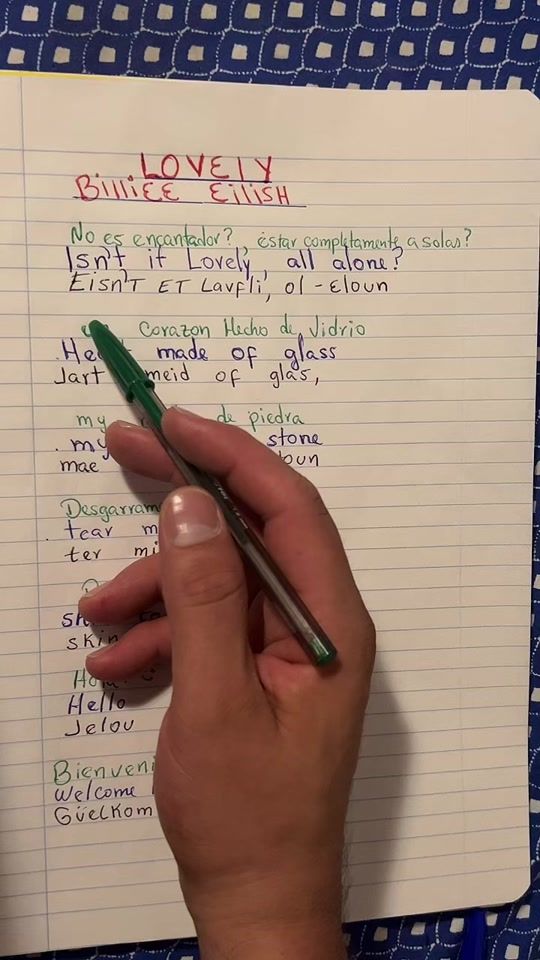 LOVELY
BilliEE EiliSH
No es encantador?, estar completamente a solas?
Isn't it Lovely, all alone?
Eisn't ET Lavfli, ol - Eloun
Corazon Hecho de Vidrio
made of glass
Jart meid of glas,
my de piedra
my stone
mae
Desgarram
tear m
ter mi
skin
Hello
Jelou
Bienveni
Welcome
Güelkom